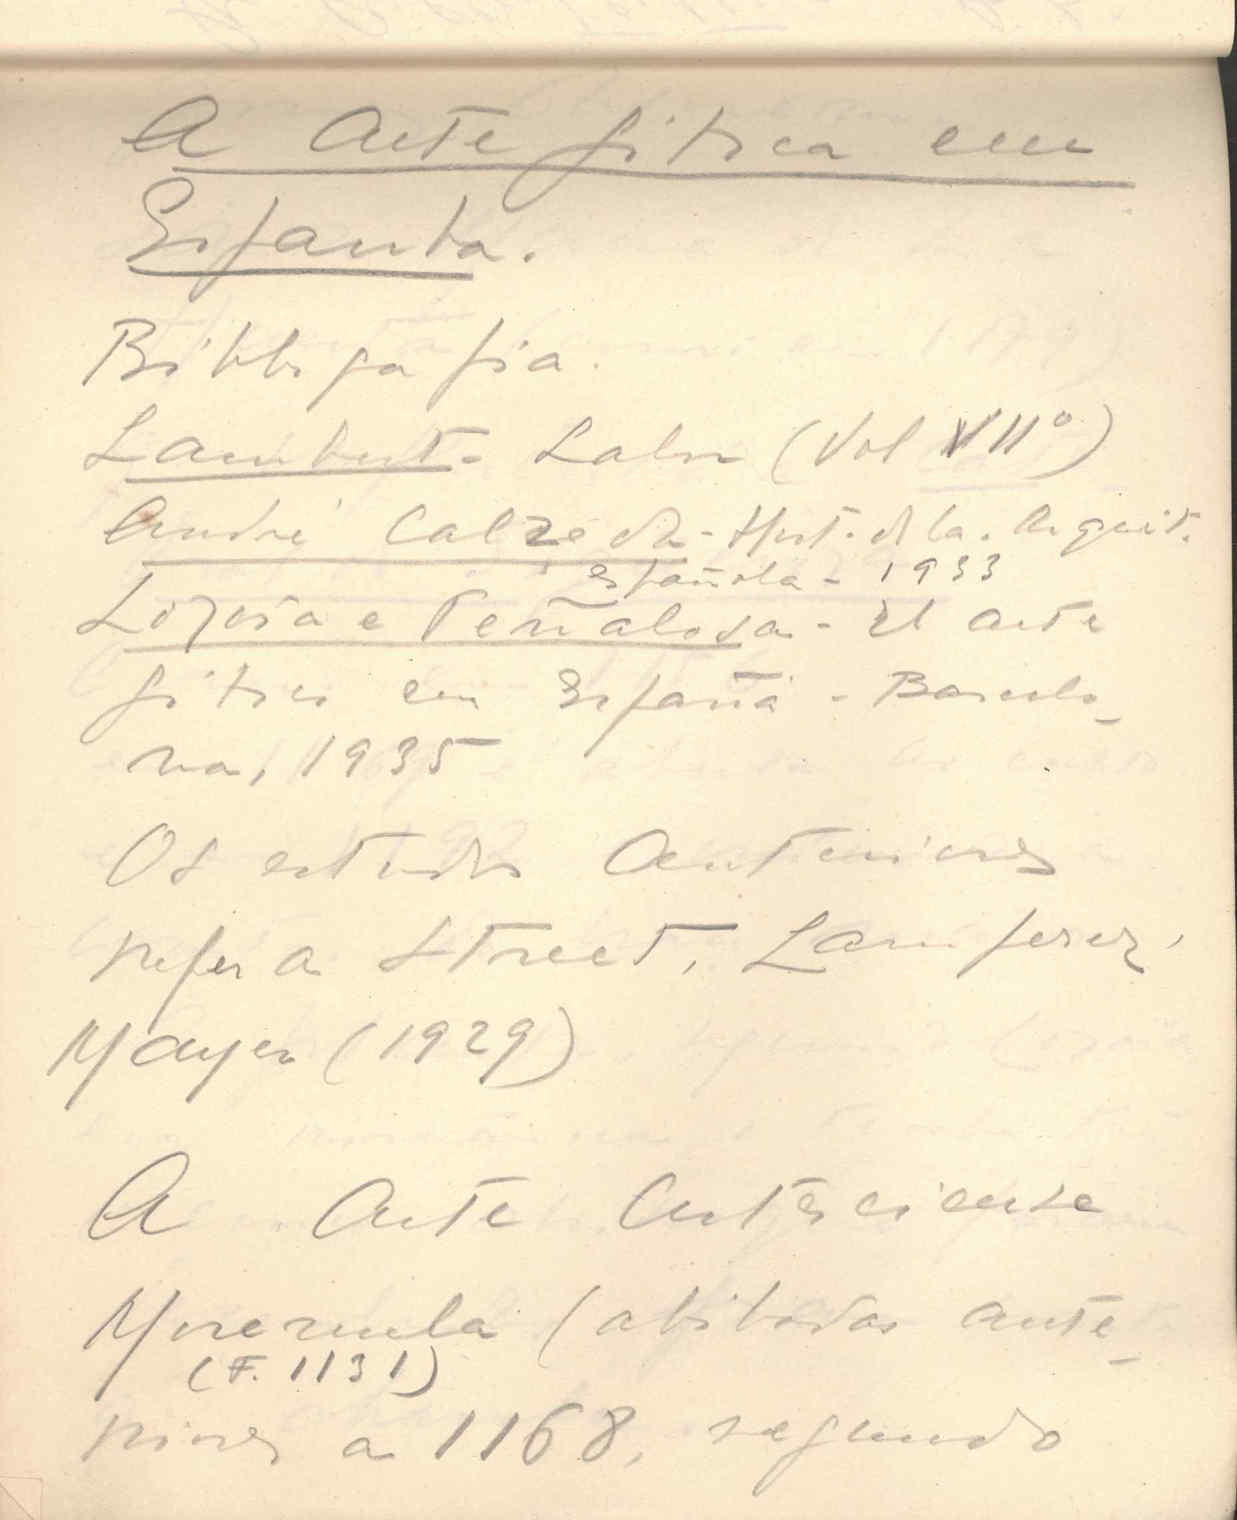 A Arte gótica em
Espanha.
Bibliografia.
Lambert - Labor (Vol VIIº)
André Calzeda - Hist. de la. Arquit.
Española - 1933
Lozoia e Peñalosa - El arte
gótico en España - Barcelo-
na, 1935
Os estudos anteriores
refer a Street, Lamperez,
Mayer (1929)
A Arte Cisterciense
Moreruela (abóbodas ante-
(F. 1131)
riores a 1168, segundo